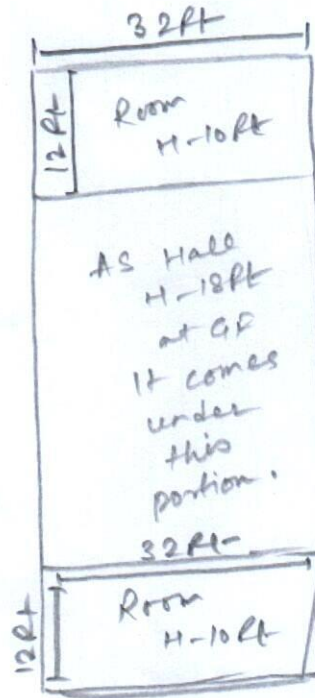 32ft
12ft
Room
H-10ft
AS Hall
H-18ft
at GF
It comes
under
this
portion.
32ft
12ft
Room
H-10ft